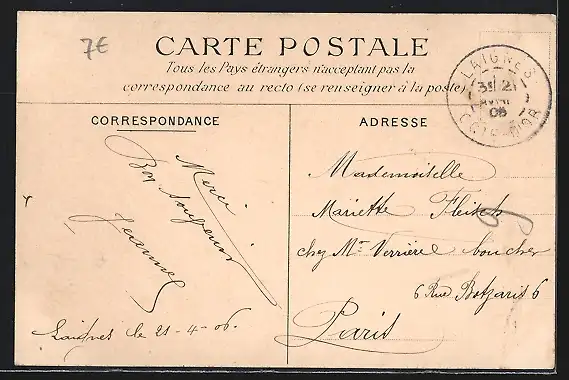 7€
CARTE POSTALE
Tous les Pays étrangers n'acceptant pas la
correspondance au recto (se renseigner à la poste)
LAIGNES
3E 21
AVRIL
06
COTE-D'OR
CORRESPONDANCE
Merci
Bon Souvenir
Jeanne
Laignes le 21-4-06.
ADRESSE
Mademoiselle
Mariette Fleisch
chez Mr Verrière boucher
6 Rue Botzaris 6
Paris